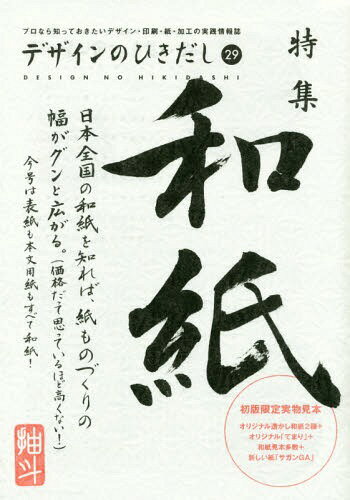 プロなら知っておきたいデザイン・印刷・紙・加工の実践情報誌
デザインのひきだし 29
DESIGN NO HIKIDASHI
特集
和紙
日本全国の和紙を知れば、紙ものづくりの
幅がグンと広がる。(価格だって思っているほど高くない!)
今号は表紙も本文用紙もすべて和紙!
抽斗
初版限定実物見本
オリジナル透かし和紙2種+
オリジナル「てまり」+
和紙見本多数+
新しい紙「サガンGA」